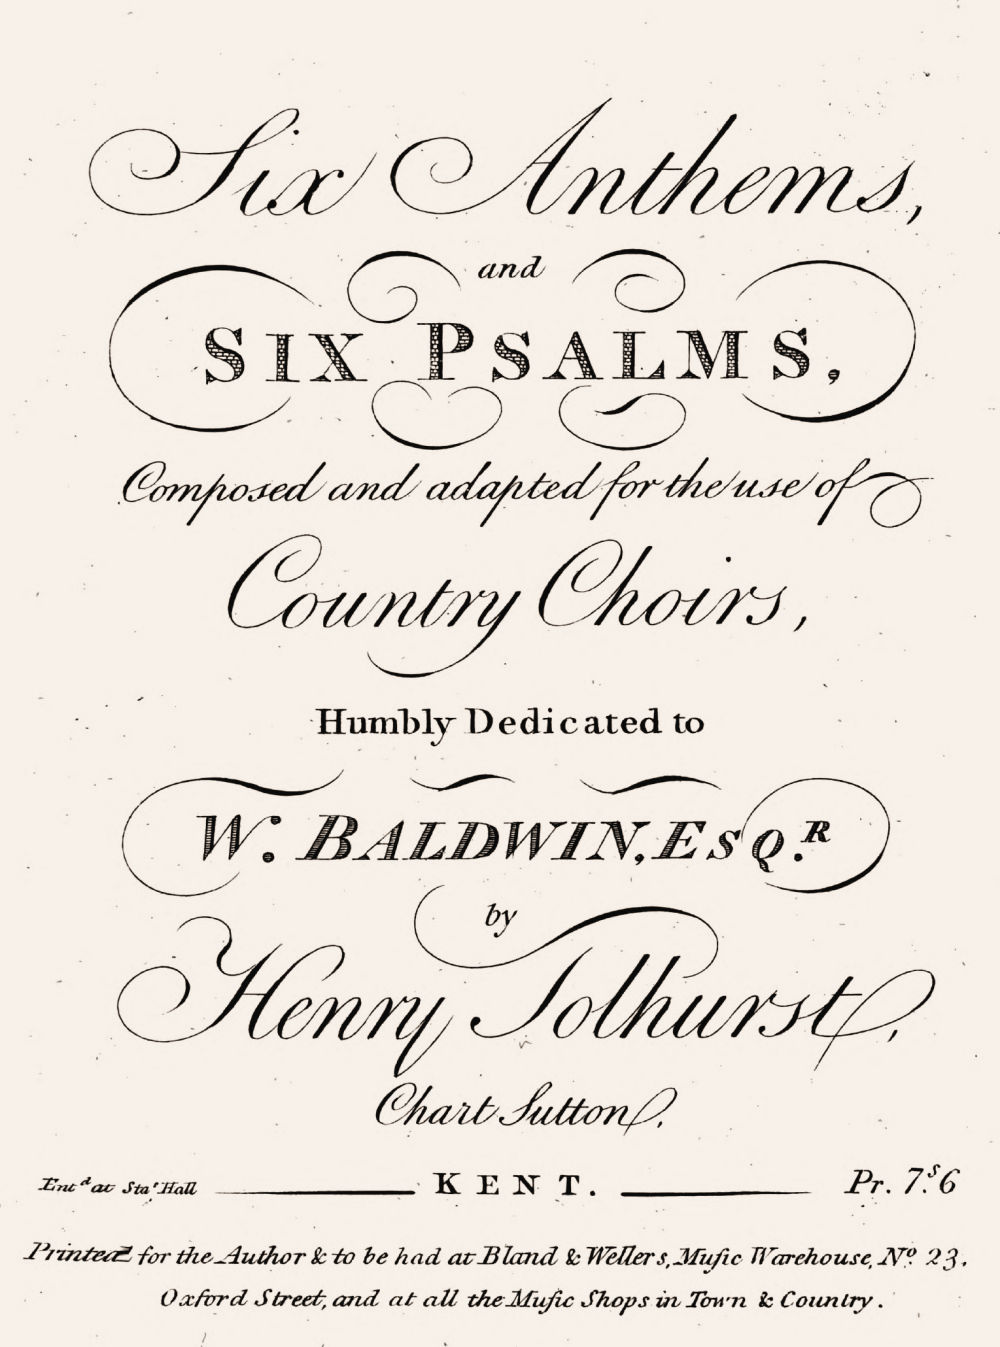 Six Anthems,
and
SIX PSALMS,
Composed and adapted for the use of
Country Choirs,
Humbly Dedicated to
W. BALDWIN, ESQ.R
by
Henry Tolhurst,
Chart Sutton.
Entd at Sta' Hall KENT. Pr. 7.s6
Printed for the Author & to be had at Bland & Wellers, Muſic Warehouse, No. 23.
Oxford Street, and at all the Muſic Shops in Town & Country.